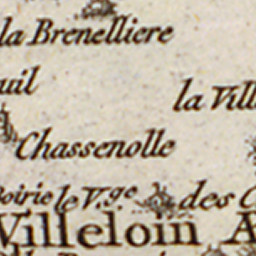 la Brenelliere
uil
la Vill
Chassenolle
Boirie le V.ge des C
Villeloin A